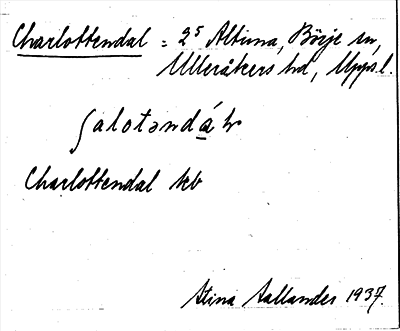 Charlottendal = 2⁵ Altuna, Börje sn,
Ulleråkers hd, Upps.l.
ʃalotənda̲
Charlottendal kb
Stina Aallander 1937.